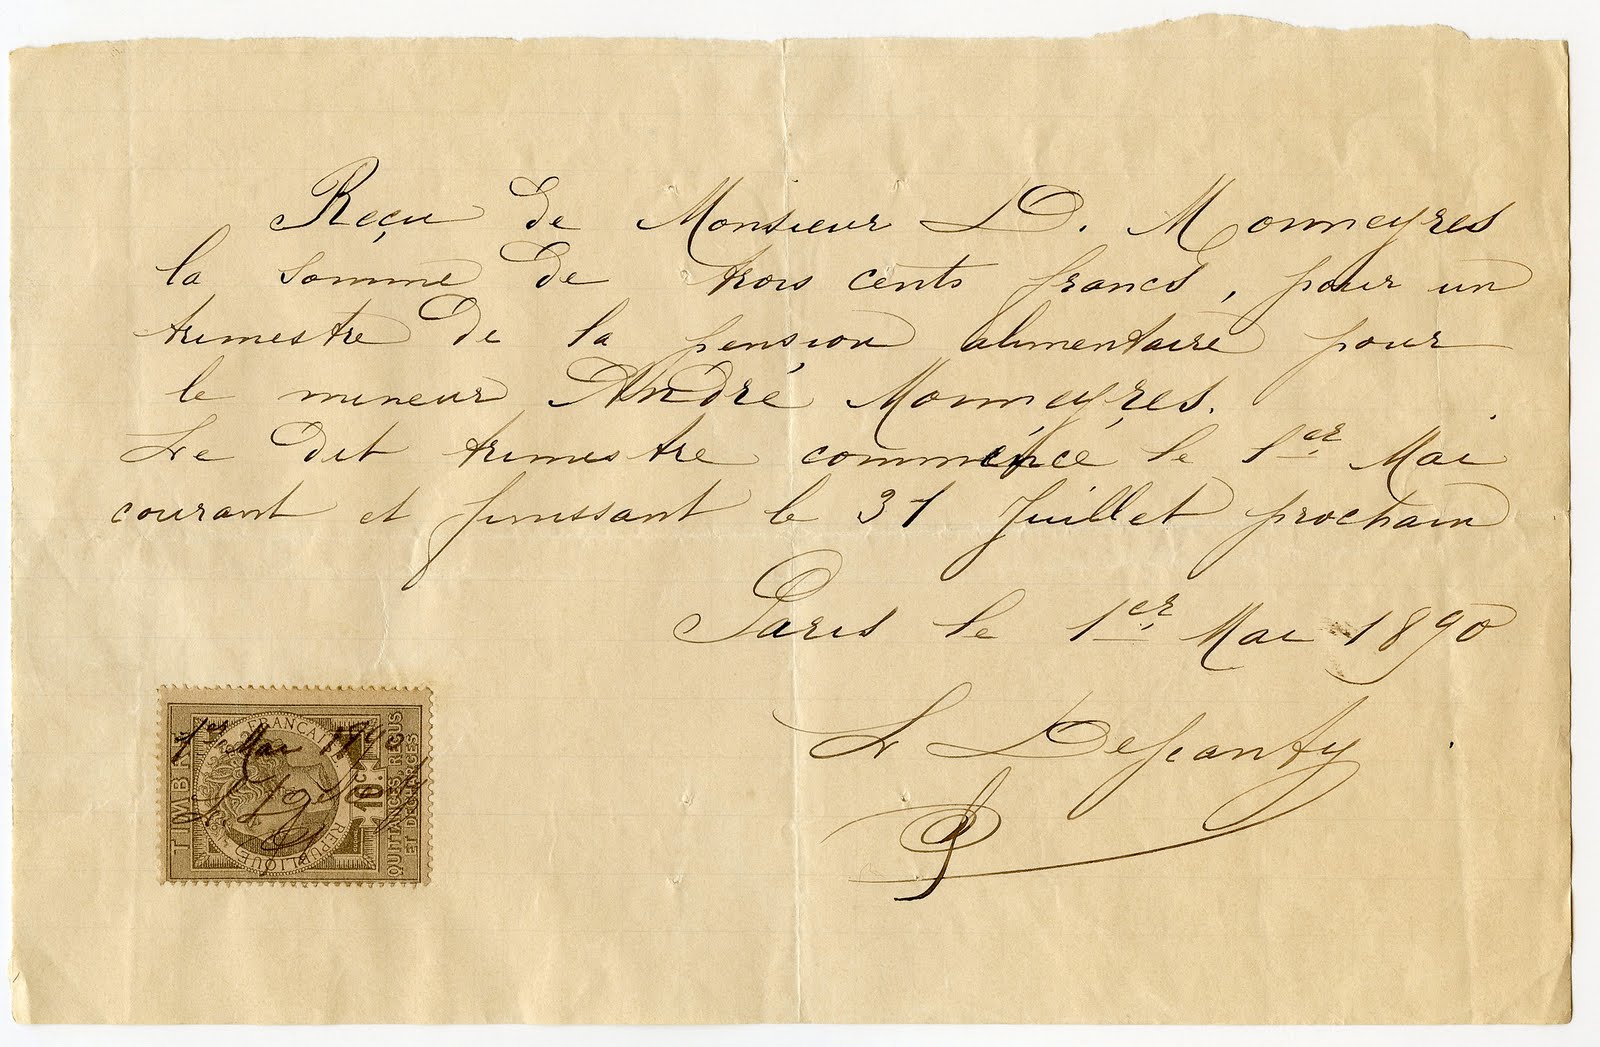 Reçu de Monsieur D. Monneyres
la somme de trois cents francs, pour un
trimestre de la pension alimentaire pour
le mineur André Monneyres.
Le dit trimestre commencé le 1er Mai
courant et finissant le 31 Juillet prochain
Paris le 1er Mai 1890
L Descanty
TIMBRE
RÉPUBLIQUE FRANÇAISE
10c
QUITTANCES, REÇUS
ET DÉCHARGES
1er Mai 1890